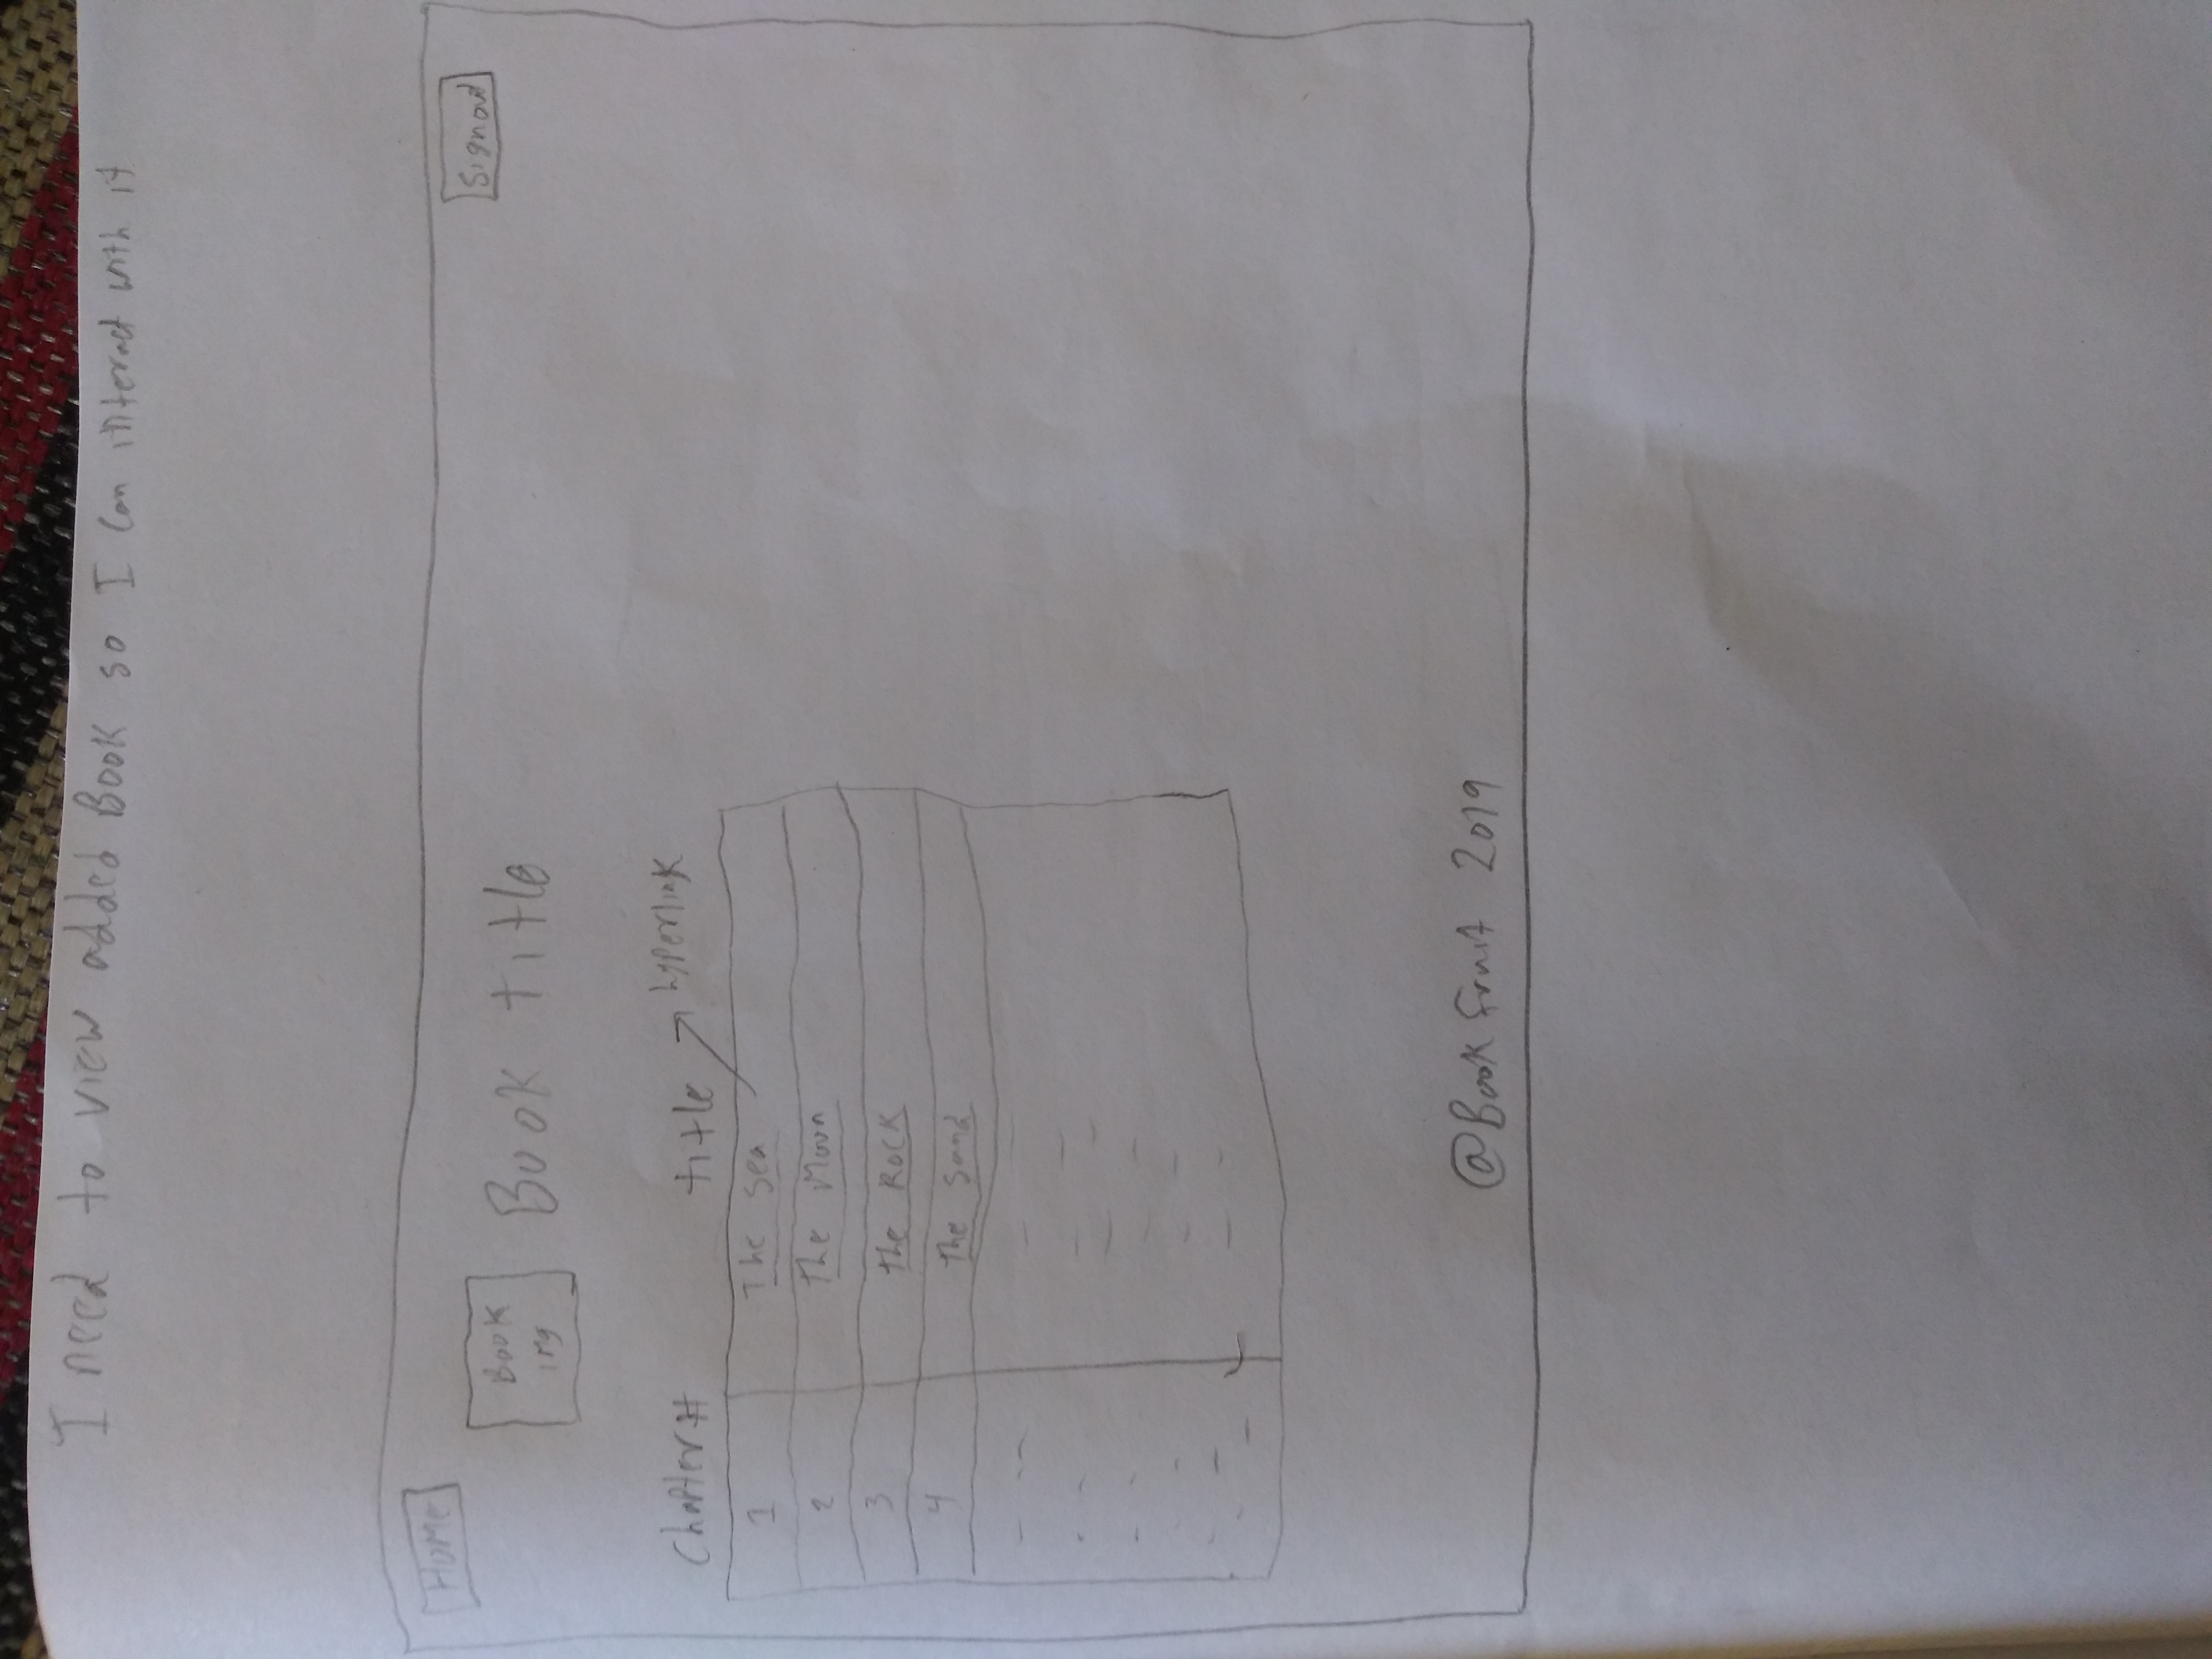 I need to view added Book so I can interact with it
Home
Signout
Book
img
Book title
Chapter# title hyperlink
1 The Sea
2 The Moon
3 the Rock
4 The Sand
@Book Fruit 2019